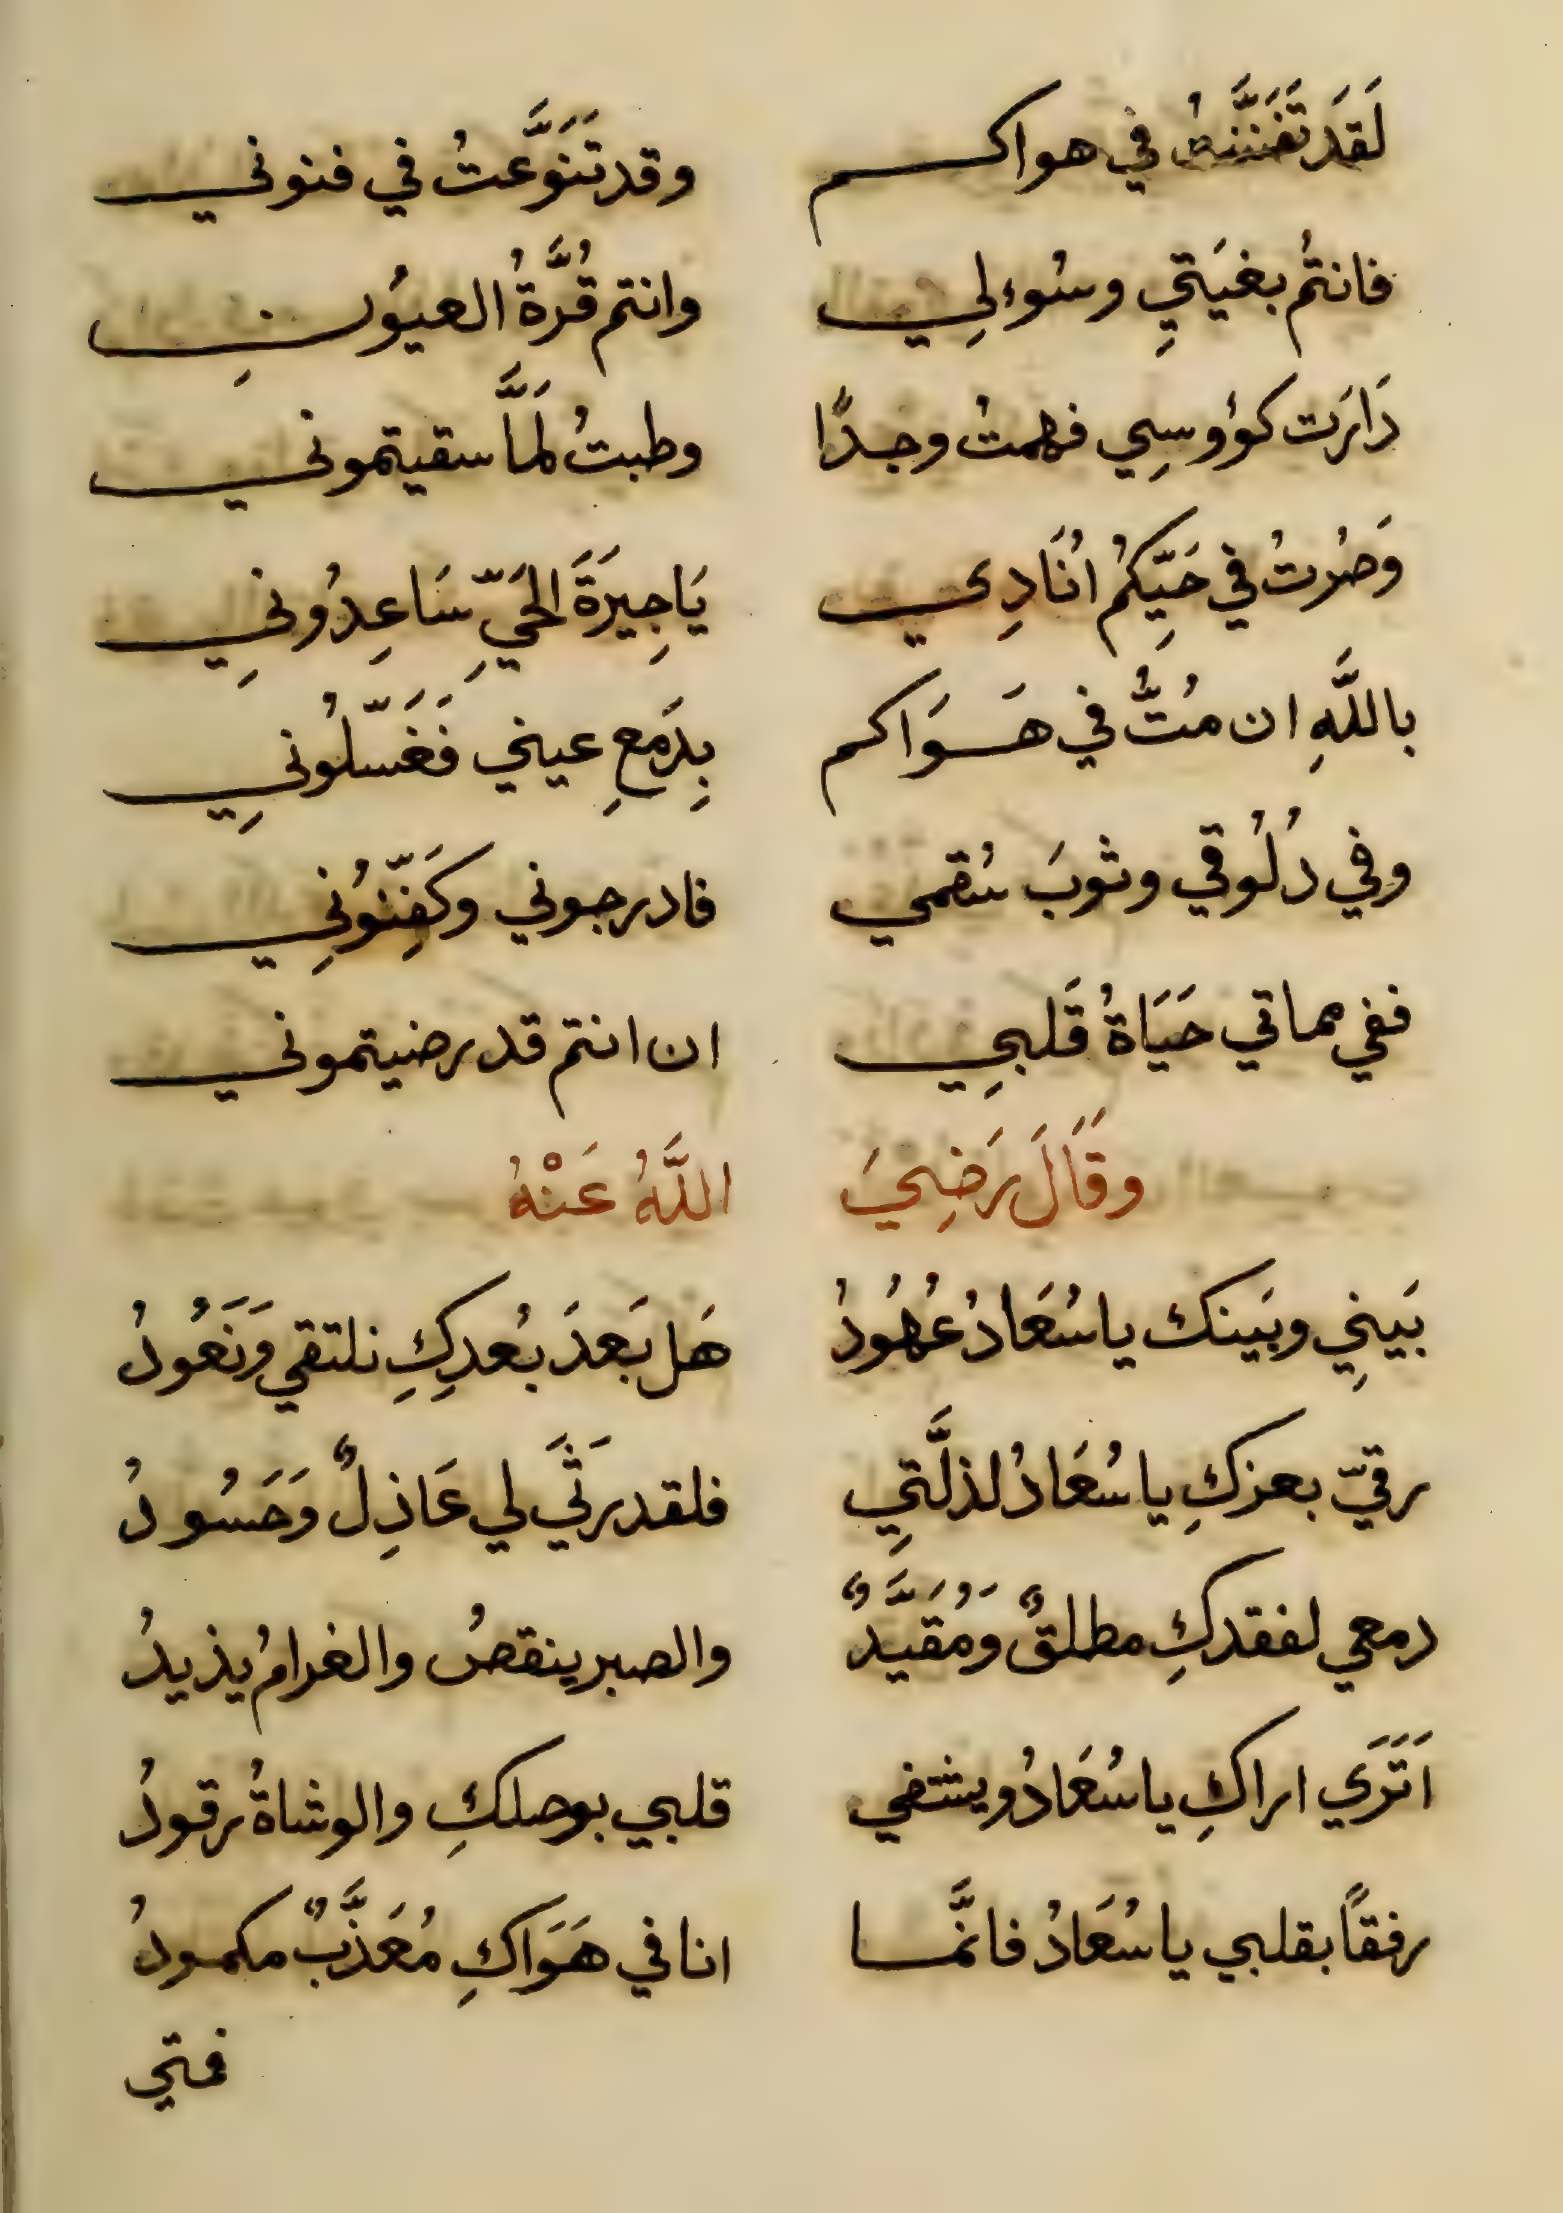 لَقَد تَفَنَّنتُ في هواكم وقد تَنَوَّعتُ في فنوني
فانتمُ بغيَتيِ وسُوءلِي وانتم قُرَّةُ العيوُنِ
دَارَت كوُوسِي فهمتُ وجدًا وطبتُ لَمَّا سقيتموني
وَصُرتُ في حَيِّكُم انُادِي يَا جِيَرَةَ الحَيِّ سَاعِدُونِي
باللَّهِ ان مُتُّ في هَوَاكم بِدَمعِ عيني فَغَسّلُونِي
وفي دُلُوقي وثوبَ سُقمي فادرجوني وكَفِّنوُنِي
ففي مماتي حَيَاةُ قَلبِي ان انتم قد رضيتموني
وقَالَ رَضِيَ اللَّهُ عَنْهُ
بَينِي وبَينك يا سُعَادُ عُهُودُ هَل بَعدَ بُعدِكِ نلتقي وَنَعُودُ
رقيّ بعزكِ يا سُعَادُ لذلَّتِي فلقد رَثَي لي عَاذِلٌ وَحَسُودُ
دمعي لفقدكِ مطلقٌ وَمُقَيَّدٌ والصبر ينقصُ والغرامُ يذيدُ
اَتَرَي اراكِ يا سُعَادُ ويشتفي قلبي بوصلكِ والوشاةُ رقودُ
رفقًا بقلبي يا سُعَادُ فانَّما انا في هَوَاكِ مُعَذَّبٌ مكمودُ
فمتي